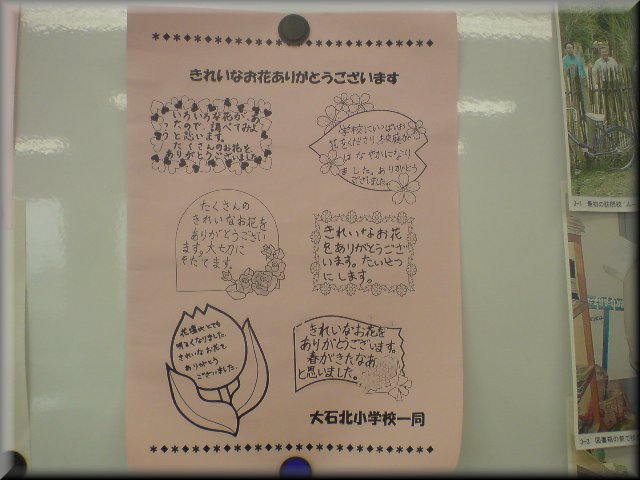 きれいなお花ありがとうございます
いろいろな花が、あ
ったので、調べてみよ
うと思います。
たくさんのお花を
ありがとうございました
学校にいっぱいお
花をくださり、校庭が
はなやかになり
ました。ありがとう
ございました。
たくさんの
きれいなお花を
ありがとうござい
ます。大切に
そだてます。
きれいなお花
をありがとうござ
います。たいせつ
にします。
花壇がとても
明るくなりました。
きれいなお花を
ありがとう
ございました。
きれいなお花を
ありがとうございます。
春がきたなあ
と思いました。
大石北小学校一同